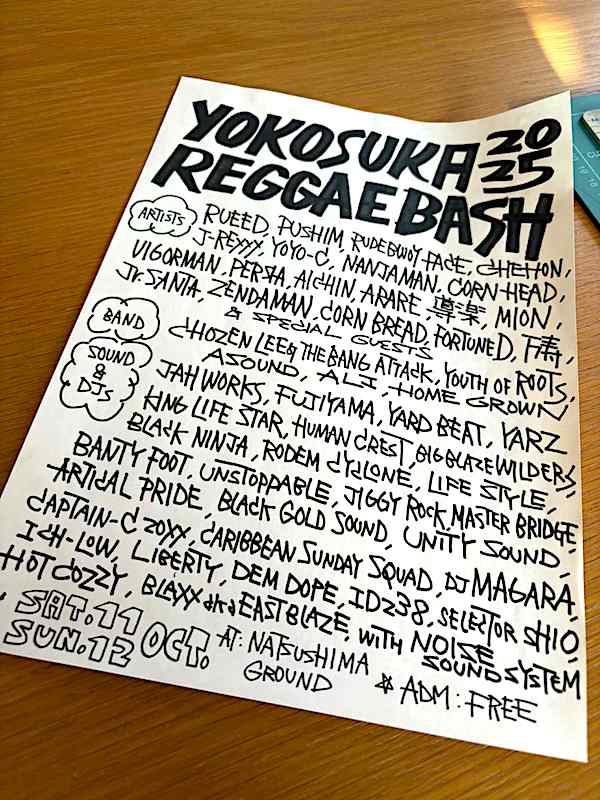 YOKOSUKA 2025
REGGAE BASH
ARTISTS
RUEED, PUSHIM, RUDEBWOY FACE, CHEHON,
J-REXXX, YOYO-C, NANJAMAN, CORN HEAD,
VIGORMAN, PERSIA, AICHIN, ARARE, 導楽, MION,
Jr. SANTA, ZENDAMAN, CORN BREAD, FORTUNE D, 下寿,
& SPECIAL GUESTS
BAND
CHOZEN LEE & THE BANG ATTACK, YOUTH OF ROOTS,
ASOUND, ALI, HOME GROWN
SOUND & DJs
JAH WORKS, FUJIYAMA, YARD BEAT, YARZ
KING LIFE STAR, HUMAN CREST, BIG BLAZE WILDERS,
BLACK NINJA, RODEM CYCLONE, LIFE STYLE,
BANTY FOOT, UNSTOPPABLE, JIGGY ROCK, MASTER BRIDGE,
ARTICAL PRIDE, BLACK GOLD SOUND, UNITY SOUND,
CAPTAIN-C ZOXX, CARIBBEAN SUNDAY SQUAD, DJ MAGARA,
ICH-LOW, LIBERTY, DEM DOPE, ID238, SELECTOR SHIO,
HOT COZZY, BLAXX aka EAST BLAZE, WITH NOISE SOUND SYSTEM
SAT.11
SUN.12 OCT.
AT: NATSUSHIMA
GROUND
☆ ADM : FREE